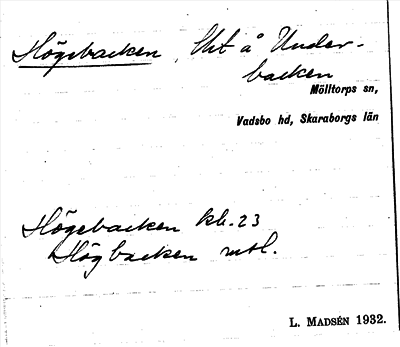 Högebacken, Utt å Under-
backen
Mölltorps sn,
Vadsbo hd, Skaraborgs län
Högebacken kb. 23
Högbacken mtl.
L. MADSÉN 1932.